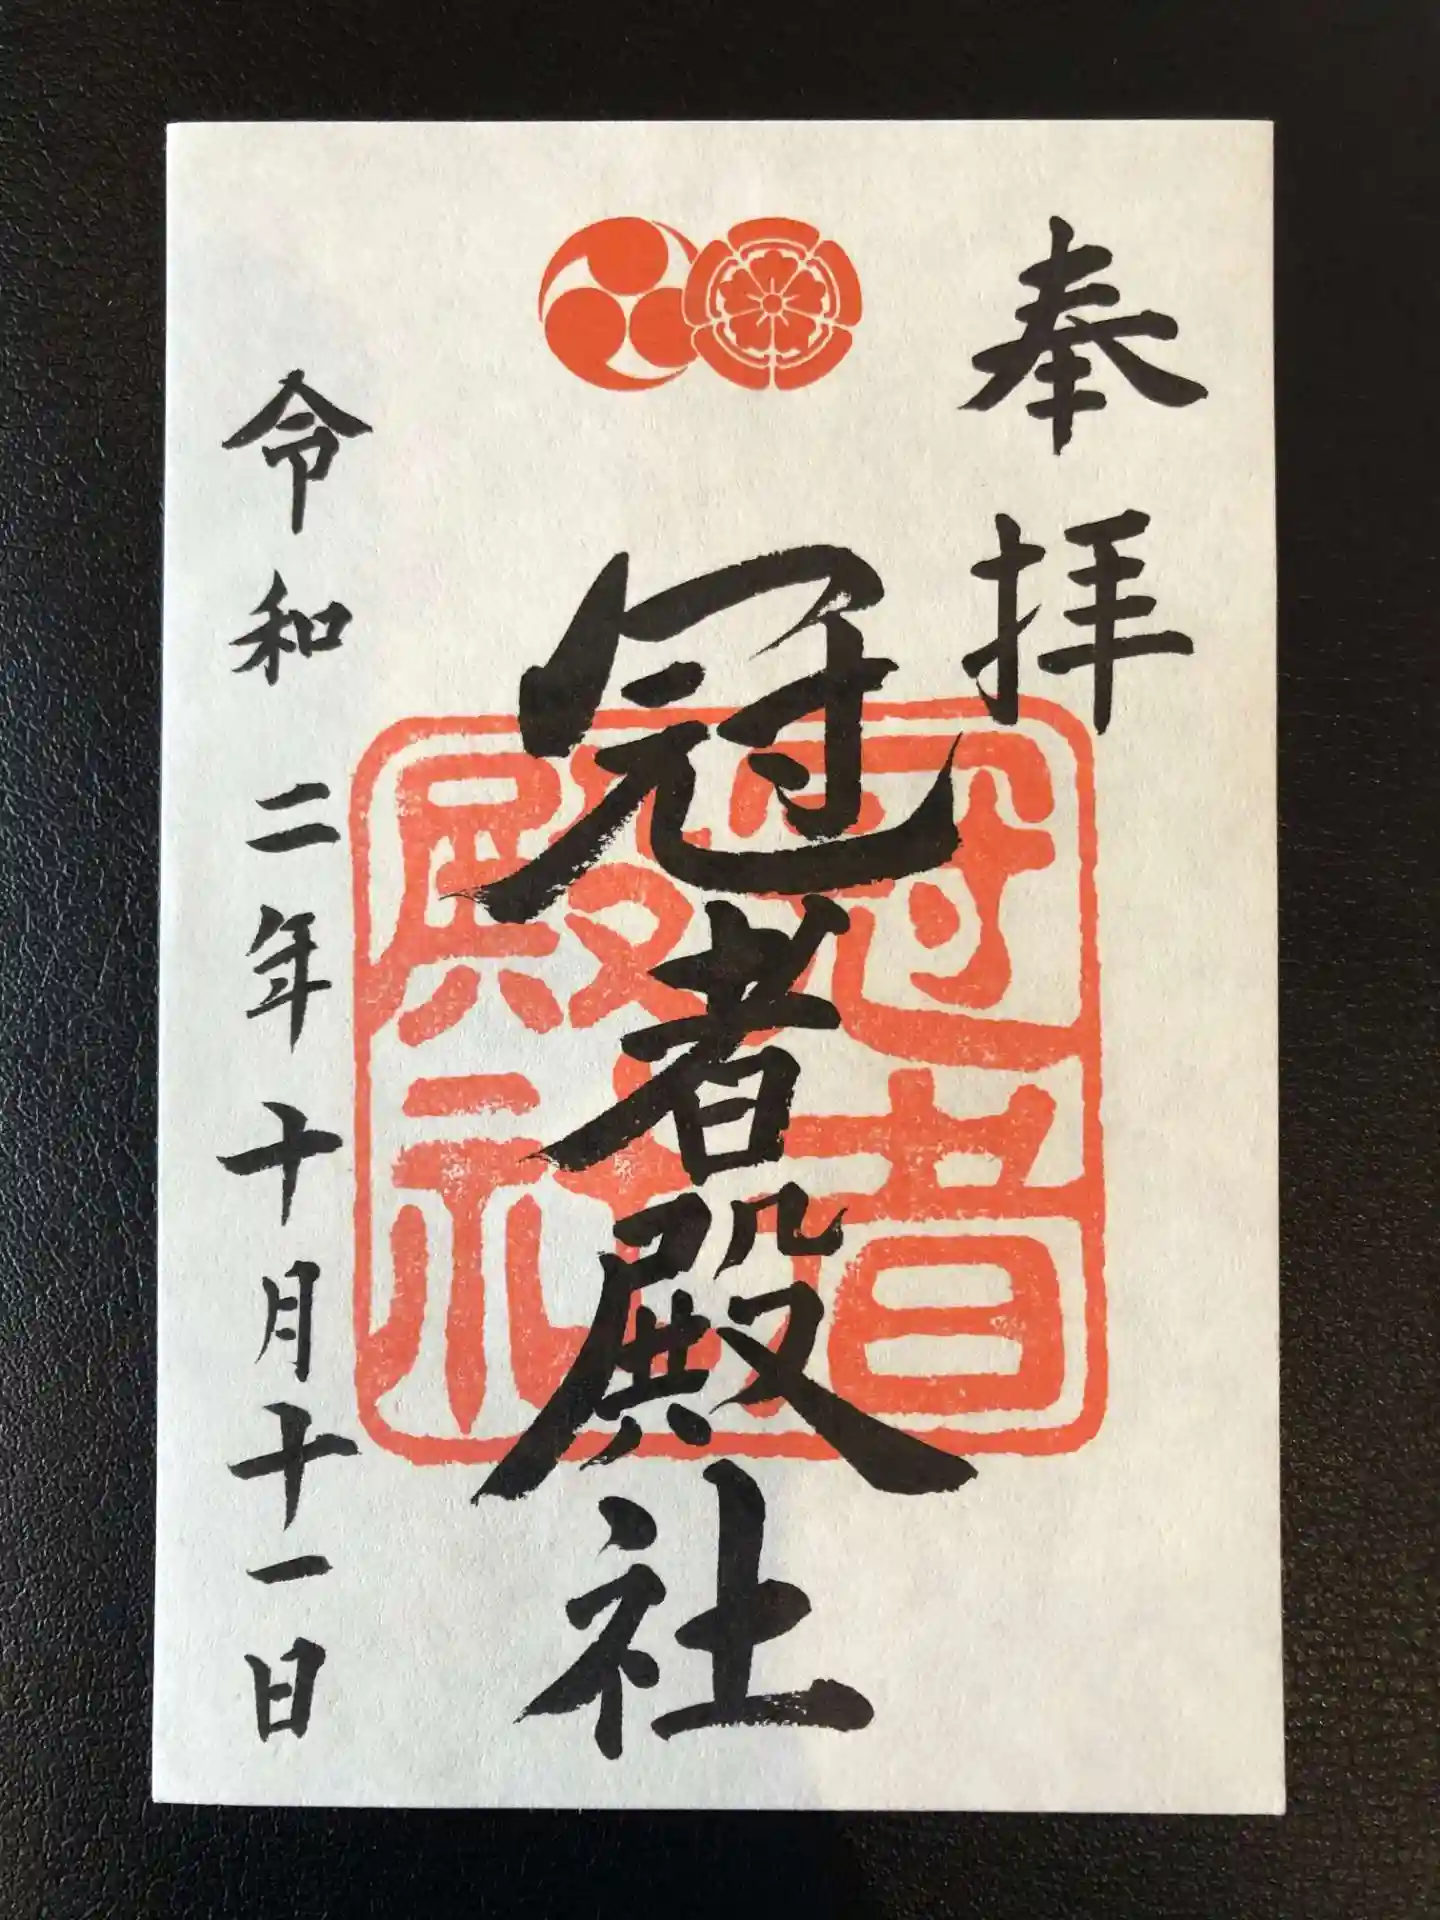 奉拝
冠者殿社
冠者
殿社
令和二年十月十一日